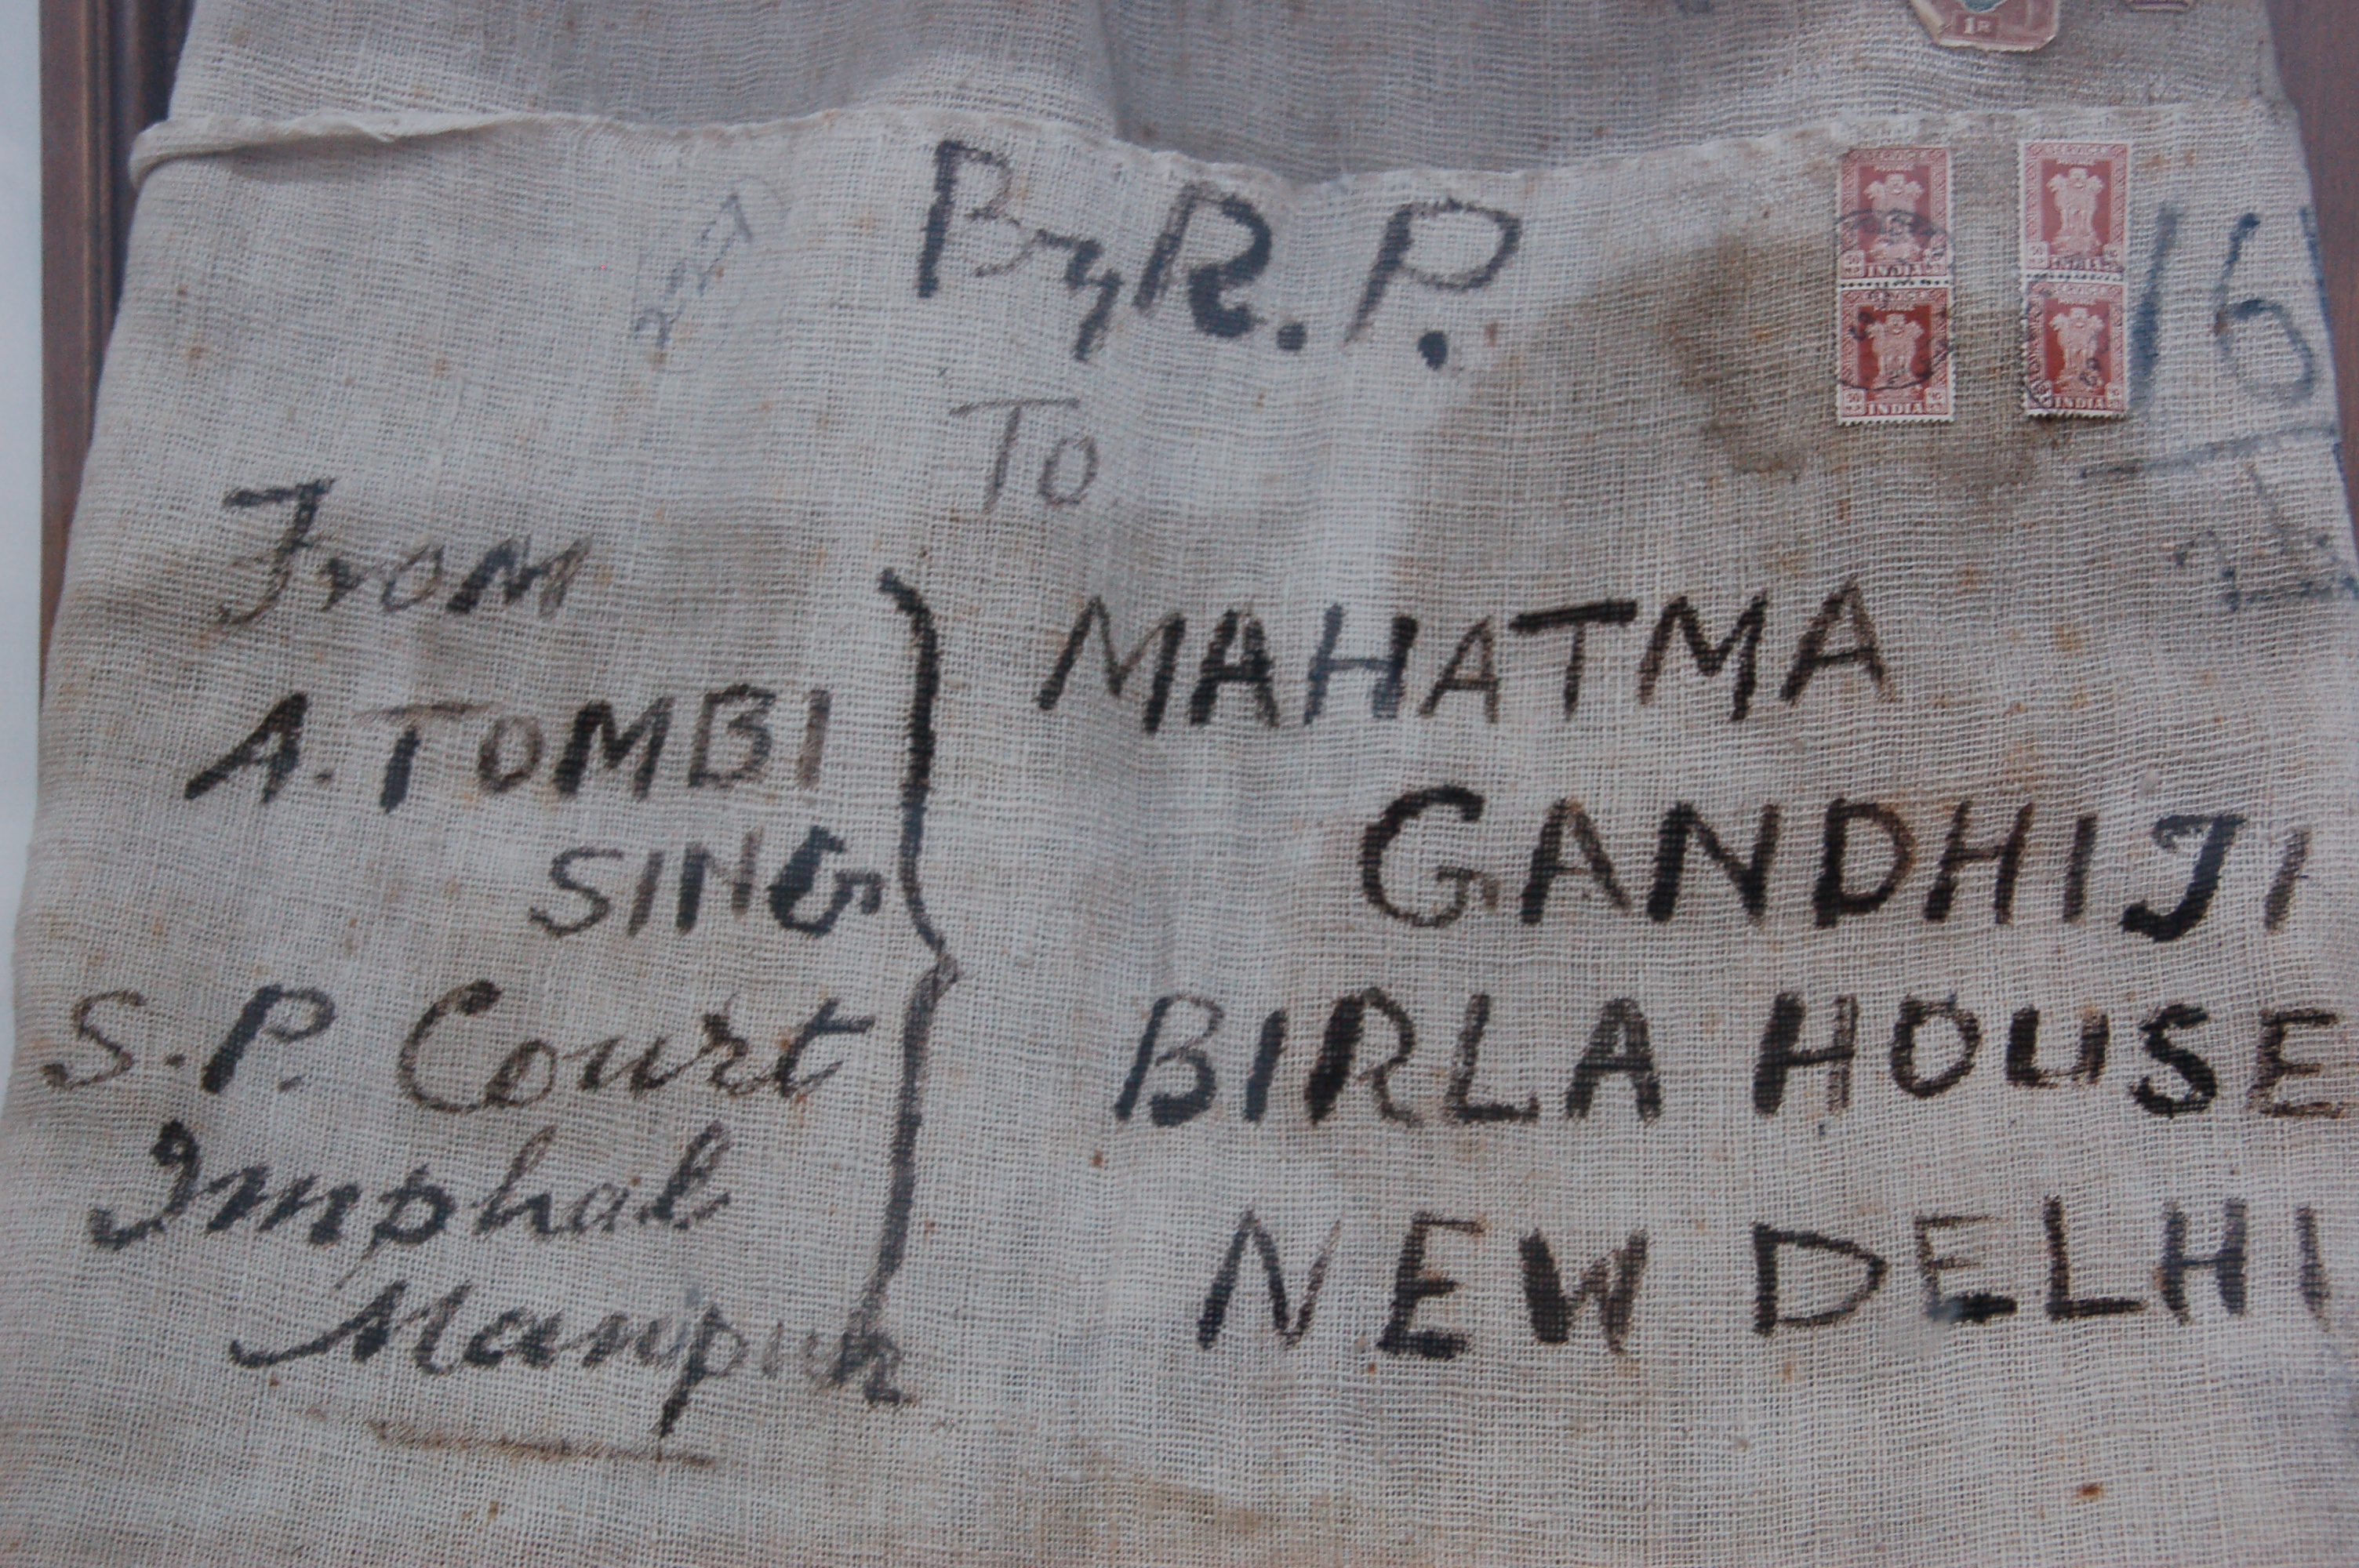 1R
By R. P.
227
16
To
From
A. TOMBI
SING
S. P. Court
Imphal
Manipur
MAHATMA
GANDHIJI
BIRLA HOUSE
NEW DELHI
SERVICE
INDIA
SERVICE
INDIA
INDIA
INDIA